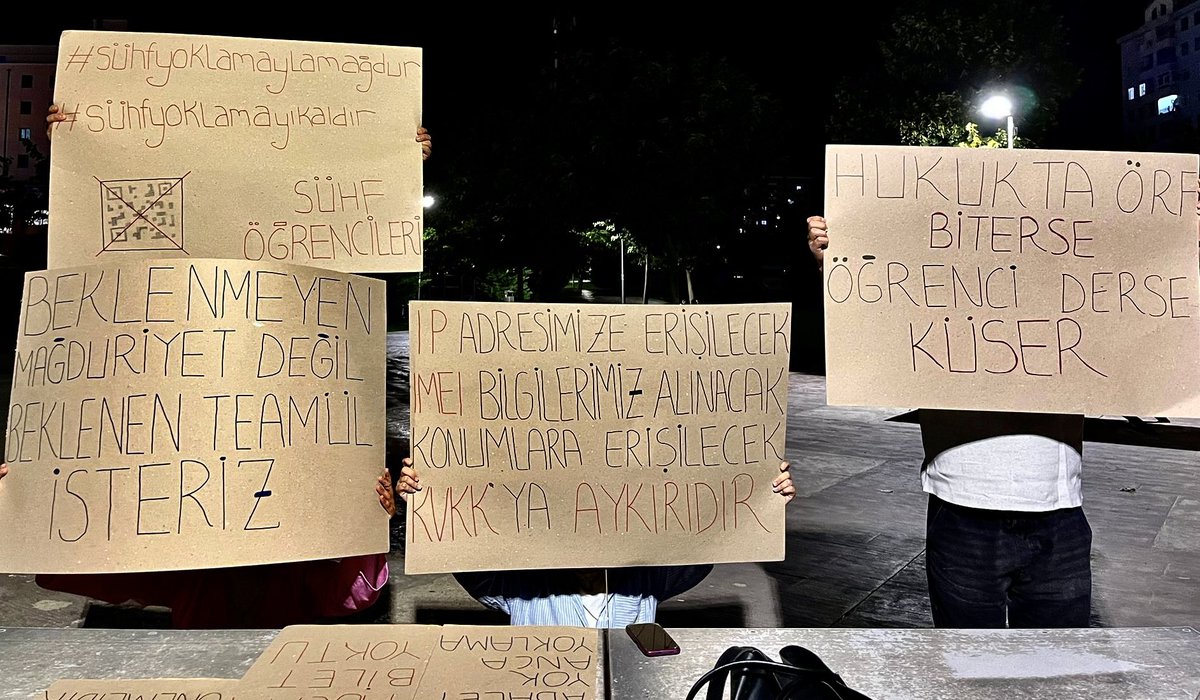 #sühfyoklamaylamağdur
#sühfyoklamayıkaldır
SÜHF
ÖĞRENCİLERİ
BEKLENMEYEN
MAĞDURİYET DEĞİL
BEKLENEN TEAMÜL
İSTERİZ
IP ADRESİMİZE ERİŞİLECEK
IMEI BİLGİLERİMİZ ALINACAK
KONUMLARA ERİŞİLECEK
KVKK'YA AYKIRIDIR
HUKUKTA ÖRF
BİTERSE
ÖĞRENCİ DERSE
KÜSER
YOKTU
BİLET
YOKLAMA
ANCA
YOK
ADALET